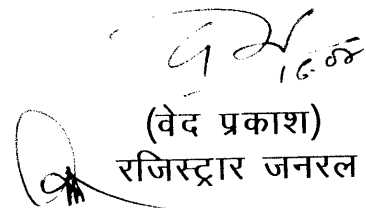 (वेद प्रकाश)
रजिस्ट्रार जनरल